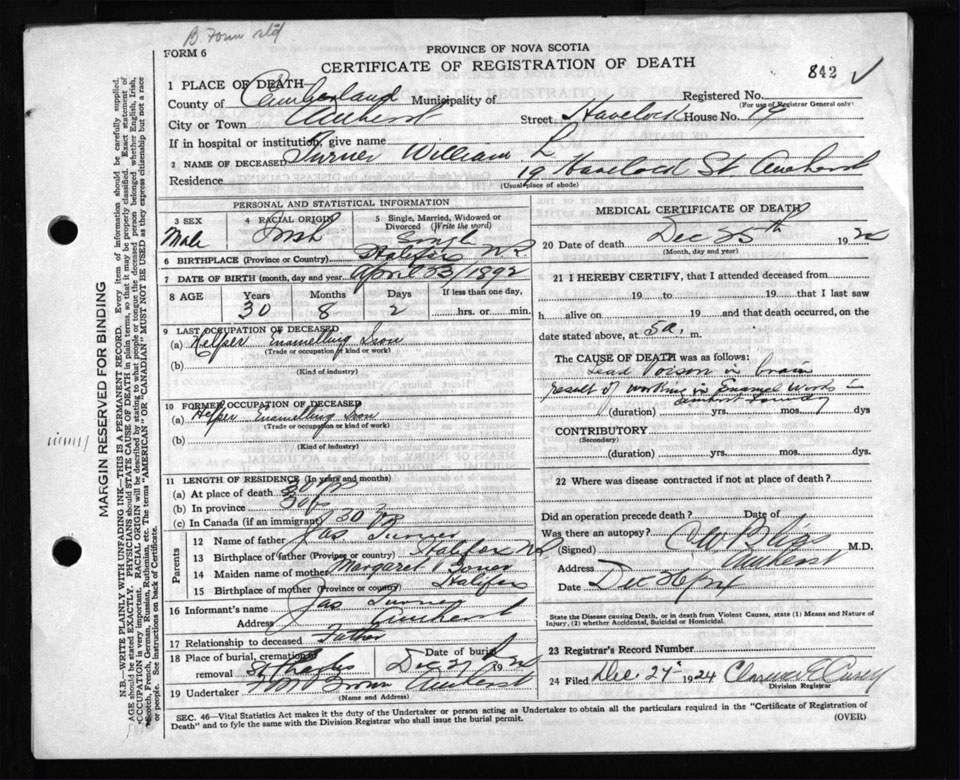 B Form std
FORM 6
PROVINCE OF NOVA SCOTIA
CERTIFICATE OF REGISTRATION OF DEATH
842 ✓
1 PLACE OF DEATH
County of Cumberland Municipality of Registered No.
(For use of Registrar General only)
City or Town Amherst Street Havelock House No. 19
If in hospital or institution, give name
2 NAME OF DECEASED Turner William L
Residence 19 Havelock St. Amherst
(Usual place of abode)
PERSONAL AND STATISTICAL INFORMATION
3 SEX Male
4 RACIAL ORIGIN Irish
5 Single, Married, Widowed or Divorced (Write the word) Single
6 BIRTHPLACE (Province or Country) Halifax
7 DATE OF BIRTH (month, day and year) April 23/1892
8 AGE Years 30 Months 8 Days 2 If less than one day, hrs. or min.
9 LAST OCCUPATION OF DECEASED
(a) Helper Enamelling Iron
(Trade or occupation or kind of work)
(b)
(Kind of industry)
10 FORMER OCCUPATION OF DECEASED
(a) Helper Enamelling Iron
(Trade or occupation or kind of work)
(b)
(Kind of industry)
11 LENGTH OF RESIDENCE (In years and months)
(a) At place of death
(b) In province
(c) In Canada (if an immigrant) 30
Parents
12 Name of father Jas Turner
13 Birthplace of father (Province or country) Halifax
14 Maiden name of mother Margaret
15 Birthplace of mother (Province or country) Halifax
16 Informant's name Jas Turner
Address Amherst
17 Relationship to deceased Father
18 Place of burial, cremation or removal St Charles Date of burial Dec 27 19
19 Undertaker Brown Amherst
(Name and Address)
MEDICAL CERTIFICATE OF DEATH
20 Date of death Dec 25th 192
(Month, day and year)
21 I HEREBY CERTIFY, that I attended deceased from
19 to 19 that I last saw
h alive on 19 and that death occurred, on
date stated above, at 5 a. m.
The CAUSE OF DEATH was as follows:
Lead Poison in brain
result of working in Enamel Works
(duration) yrs. mos. dys
CONTRIBUTORY
(Secondary)
(duration) yrs. mos. dys.
22 Where was disease contracted if not at place of death?
Did an operation precede death? Date of
Was there an autopsy?
(Signed) Bliss M.D.
Address Amherst
Date Dec 26
State the Disease causing Death, or in Death from Violent Causes, state (1) Means and Nature of Injury, (2) whether Accidental, Suicidal or Homicidal.
23 Registrar's Record Number
24 Filed Dec. 27 1924 Clarence
Division Registrar
SEC. 46—Vital Statistics Act makes it the duty of the Undertaker or person acting as Undertaker to obtain all the particulars required in the "Certificate of Registration of
Death" and to fyle the same with the Division Registrar who shall issue the burial permit.
(OVER)
MARGIN RESERVED FOR BINDING
N.B.—WRITE PLAINLY WITH UNFADING INK—THIS IS A PERMANENT RECORD. Every item of information should be carefully supplied.
AGE should be stated EXACTLY. PHYSICIANS should STATE CAUSE OF DEATH in plain terms, so that it may be properly classified. Exact statement of
OCCUPATION is very important. RACIAL ORIGIN will be described by stating to what people or tongue the deceased person belonged whether English, Irish,
Scotch, French, German, Russian, Ruthenian, etc. The terms "AMERICAN" OR "CANADIAN" MUST NOT BE USED as they express citizenship but not a race
or people. See instructions on back of Certificate.